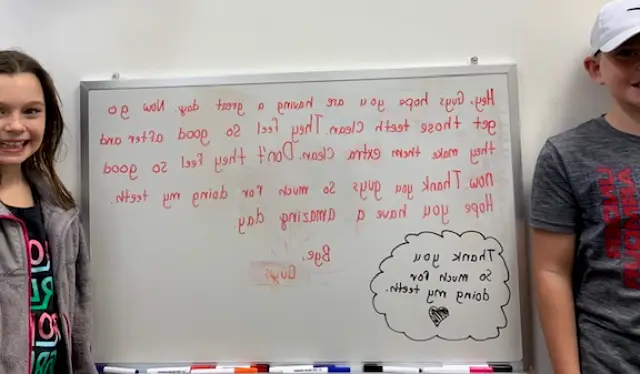 Hey, Guys hope you are having a great day Now go
get those teeth clean. They feel so good after and
they make them extra clean. Don't they feel so good
now. Thank you guys so much for doing my teeth.
Hope you have a amazing day
Bye.
Guys
Thank you
so much for
doing my teeth.